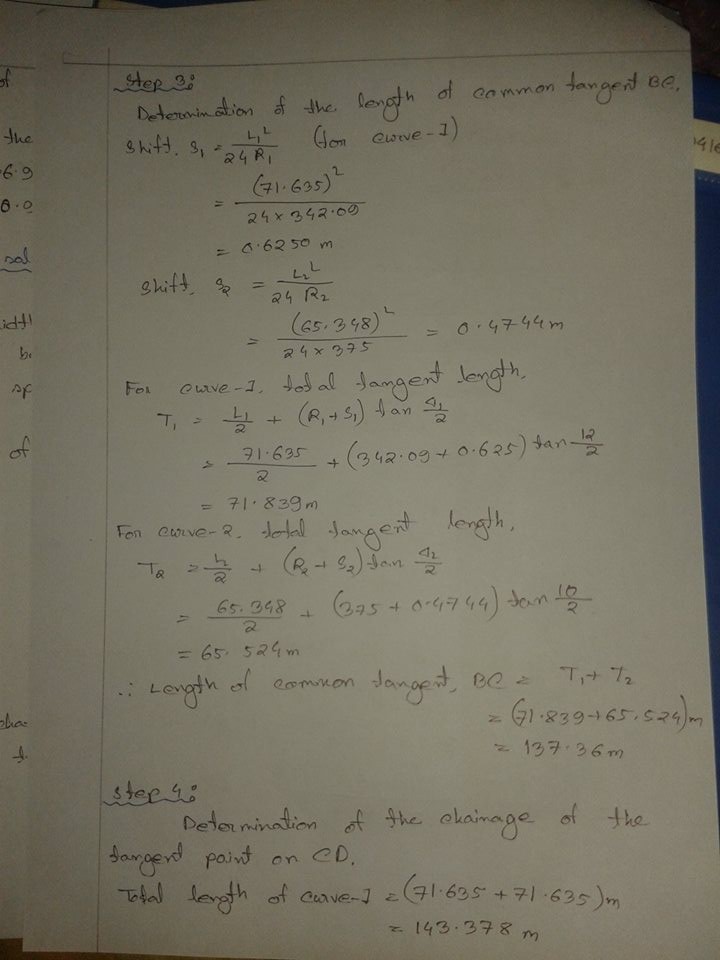 Step 3:
Determination of the length of common tangent BC.
Shift, S₁ = L₁² / 24 R₁ (for curve-1)
= (71.635)² / 24 × 342.09
= 0.6250 m
Shift, S₂ = L₂² / 24 R₂
= (65.348)² / 24 × 375 = 0.4744 m
For curve-1, total tangent length,
T₁ = L₁/2 + (R₁ + S₁) tan Δ₁/2
= 71.635/2 + (342.09 + 0.625) tan 12/2
= 71.839 m
For curve-2, total tangent length,
T₂ = L/2 + (R₂ + S₂) tan Δ₂/2
= 65.348/2 + (375 + 0.4744) tan 10/2
= 65.524 m
∴ Length of common tangent, BC = T₁ + T₂
= (71.839 + 65.524) m
= 137.36 m
Step 4:
Determination of the chainage of the
tangent point on CD.
Total length of curve-1 = (71.635 + 71.635) m
= 143.378 m
of
the
6.9
0.0
sol
idth
sp
of